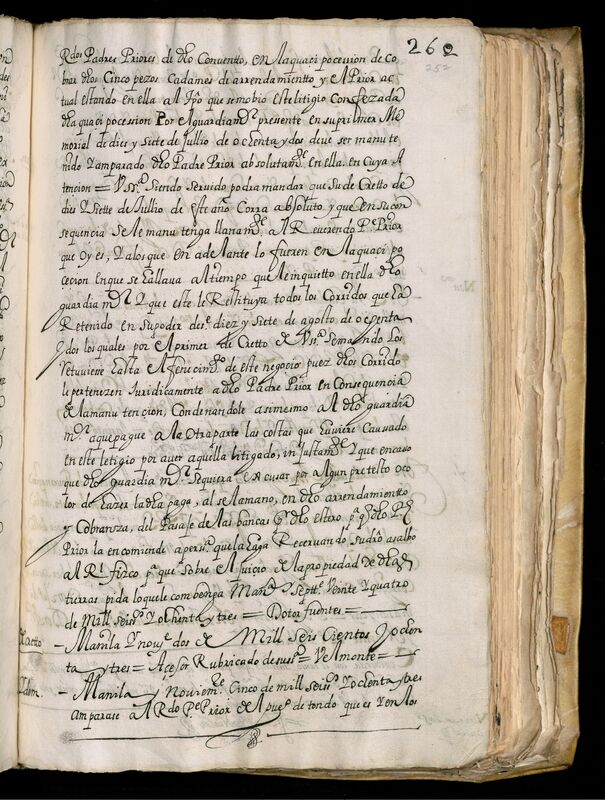 262
252
Rdos Padres Priores de dho Conventto, en la quaci pocession de co
brar dhos Cinco pezos Cadames de arrendamientto y el Prior ac
tual estando en ella al tpo que se mobio este litigio Confezada
dha quaci pocession Por el guardian mr presente en su primer Me
morial de dies y siete de Jullio de ochenta y dos deve ser manute
nido y amparado dho Padre Prior absolutamte en ella. en Cuya A
tencion = Vssa Siendo servido podra mandar que su decretto de
dies y Siette de Jullio de este año Corra absoluto y que en su con
sequencia se le manutenga llanamte al Reverendo Pe Prior
que oy es, y a los que en adelante lo fueren en la quaci po
cecion en que se hallava al tiempo que le inquietto en ella dho
guardia mr Y que este le Restituya todos los Corridos que ha
Retenido en su poder desde diez y siete de agosto de ochenta
y dos los quales por el primer decretto de Vssa se mando los
Retuviese hasta el fenecimto de este negocio puez dhos Corridos
le pertenezen Juridicamente a dho Padre Prior en Consequencia
de la manutencion, Condenandole asimesmo al dho guardia
mr a que pague a la otra parte las costas que huviere Causado
en este letigio por aver aquella litigado, injustamte Y que en caso
que dho guardia mr se quiera escusar por algun pretesto o co
lor de hazer la dha paga, al se la mano, en dho arrendamientto
y Cobransa, del Pasaje de las bancas de dho estero pa que dho Pe
Prior la encomiende a persa que la haga Recervando su dro asalbo
al Rl fizco pa que sobre el juicio de la propiedad de dhas
tierras pida lo que le combenga Mana y Septte Veinte y quatro
de Mill Seiss Y ochenta y tres = Dotor fuentes =
Manila y nove dos de Mill Seis Cientos y ochen
ta y tres = Acesor Rubricado de su ssa = Velmonte =
Manila y Noviemre Cinco de mill seiss y ochenta y tres
amparase al Rdo Pe Prior del pueo de tondo que es y en los